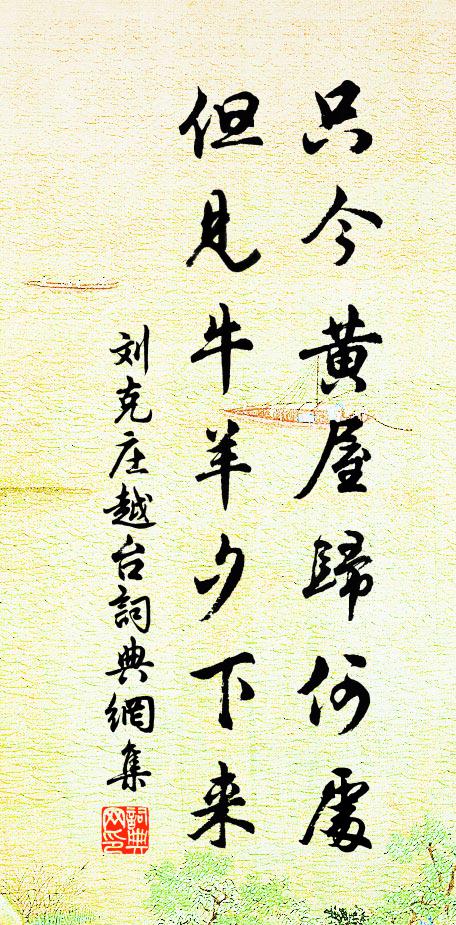 只今黄屋歸何處
但見牛羊夕下来
刘克庄越台詞典網集
詞典網印